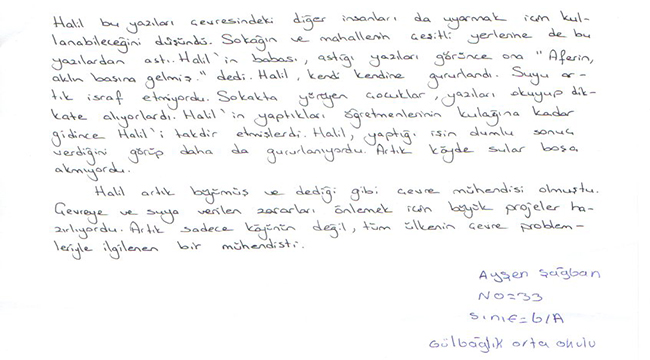 Halil bu yazıları çevresindeki diğer insanları da uyarmak için kul-
lanabileceğini düşündü. Sokağın ve mahallenin çeşitli yerlerine de bu
yazılardan astı. Halil'in babası, astığı yazıları görünce ona "Aferin,
aklın başına gelmiş." dedi. Halil, kendi kendine gururlandı. Suyu ar-
tık israf etmiyordu. Sokakta yürüyen çocuklar, yazıları okuyup dik-
kate alıyorlardı. Halil'in yaptıkları öğretmenlerinin kulağına kadar
gidince Halil'i takdir etmişlerdi. Halil, yaptığı işin olumlu sonuç
verdiğini görüp daha da gururlanıyordu. Artık köyde sular boşa
akmıyordu.
Halil artık büyümüş ve dediği gibi çevre mühendisi olmuştu.
Çevreye ve suya verilen zararları önlemek için büyük projeler ha-
zırlıyordu. Artık sadece köyünün değil, tüm ülkenin çevre problem-
leriyle ilgilenen bir mühendisti.
Ayşen Sağban
NO=33
SINIF=6/A
Gülbağlık orta okulu